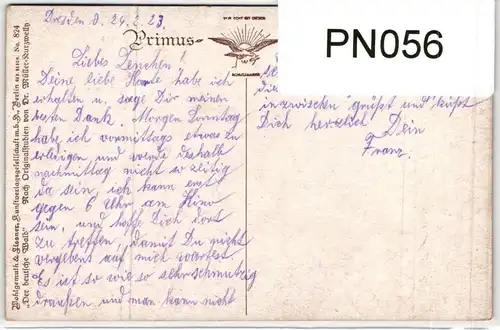 Dresden d. 24.2.23.
Primus
VOR ECHT MIT DIESEM
SCHUTZMARKE
PN056
Liebes Lenchen!
Deine liebe Karte habe ich
erhalten u. sage Dir meinen
besten Dank. Morgen Sonntag
habe ich vormittags etwas zu
erledigen, und werde deshalb
nachmittag nicht so zeitig
da sein, ich kann erst
gegen 6 Uhr, am Kino
sein, und hoffe Dich dort
zu treffen, damit Du nicht
vergebens auf mich wartest
Es ist so wie so sehr schmutzig
draußen und man kann nicht
inzwischen grüßt und küßt
Dich herzlich Dein
Franz.
Wohlgemuth & Lissner, Kunstverlagsgesellschaft m.b.H. Berlin No. 824
"Der deutsche Wald" Nach Originalstudien von Dr. Müller-Kurzwelly